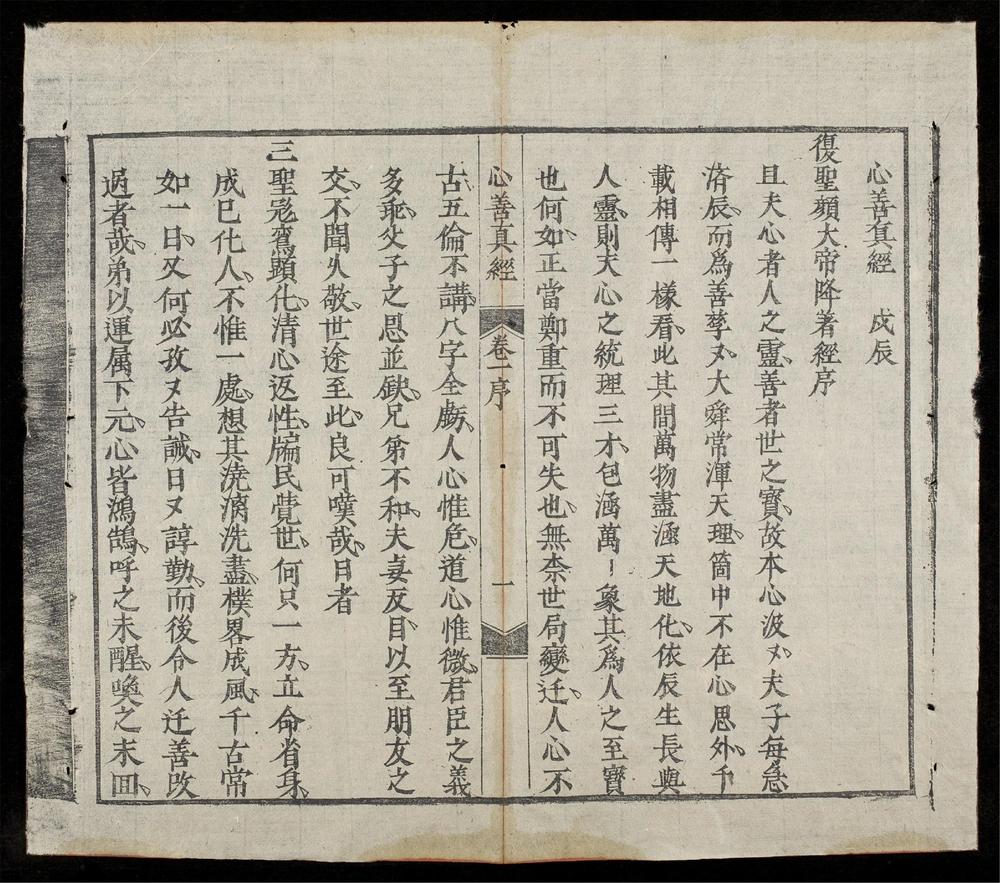 心善真經 戍辰
復聖顏大帝降著經序
且夫心者人之靈善者世之寶故本心汲〻夫子每急
済辰而爲善孳〻大舜常渾天理箇中不在心思外千
載相傳一樣看此其間萬物盡涵天地化依辰生長與
人靈則夫心之統理三才包涵萬〻象其爲人之至寶
也何如正當鄭重而不可失也無柰世局變迁人心不
心善真經 卷一序 一
古五倫不講八字全虧人心惟危道心惟微君臣之義
多乖父子之恩並缺兄弟不和夫妻反目以至朋友之
交不聞久敬世途至此良可嘆哉日者
三聖寃鸞顯化清心返性牖民覺世何只一方立命省身
成己化人不惟一處想其澆漓洗盡樸畧成風千古常
如一日又何必孜〻告誡日〻諄勤而後令人迁善改
過者哉弟以運属下元心皆鴻鵠呼之未醒喚之未囬